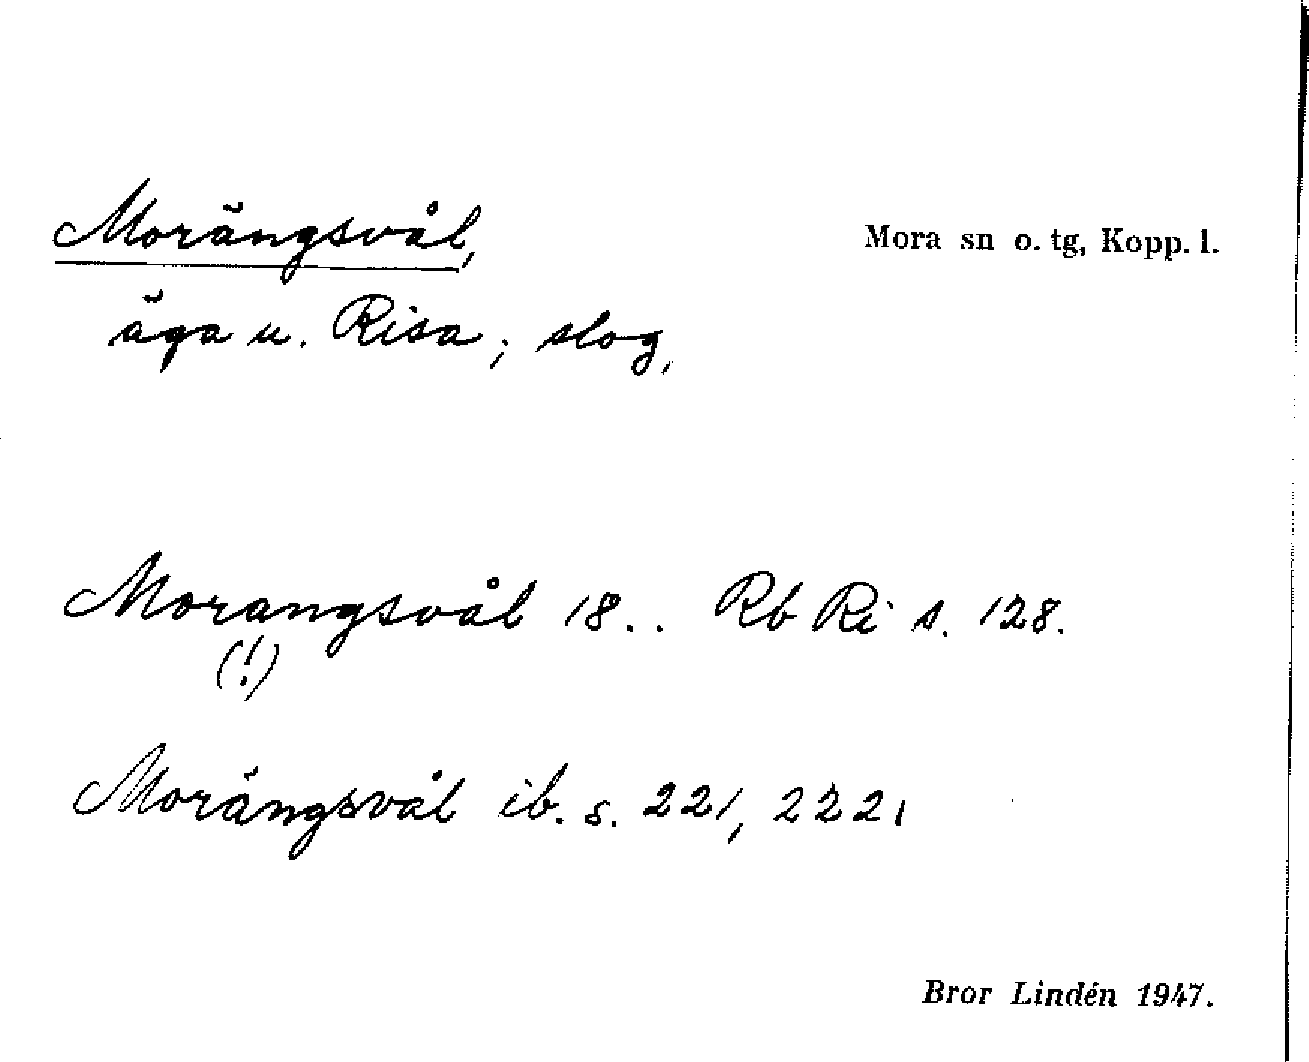 Morängsvål,
Mora sn o. tg, Kopp. l.
äga u. Risa; slog,
Morangsvål 18.. Rb Ri s. 128.
(!)
Morängsvål ib. s. 221, 222,
Bror Lindén 1947.